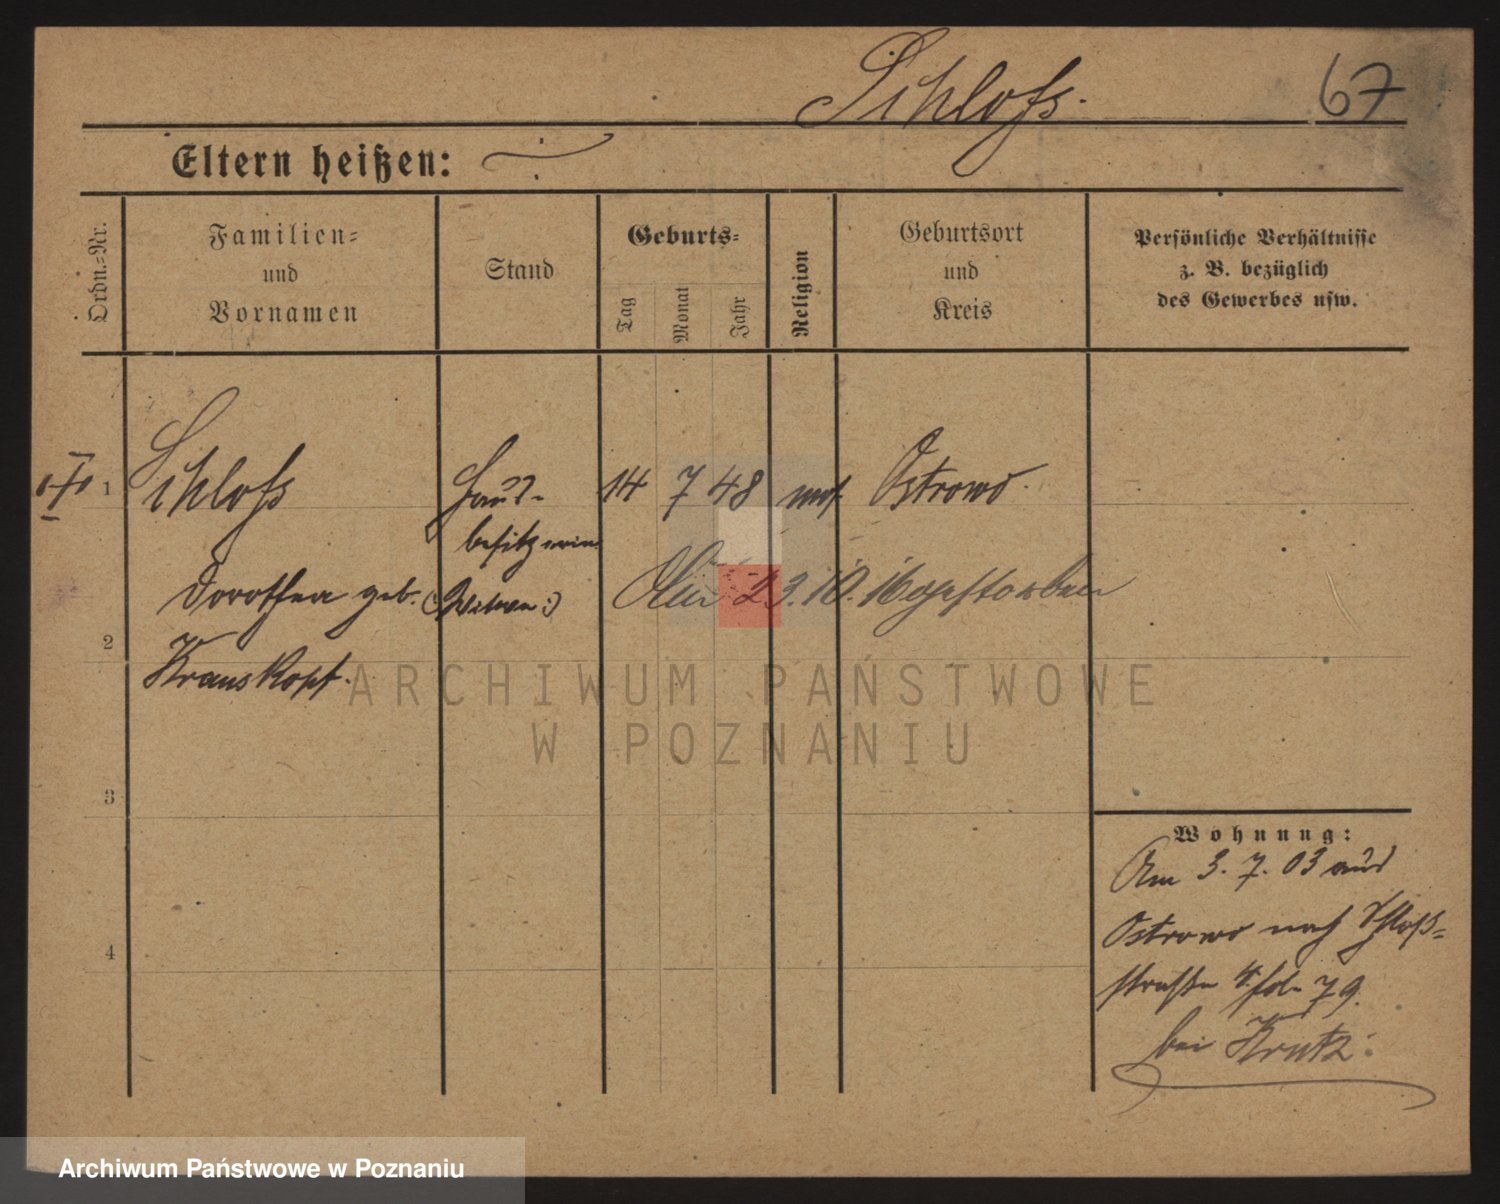 Schloß.
67
Eltern heißen:
Ordn.-Nr.
Familien-
und
Vornamen
Stand
Geburts-
Tag
Monat
Jahr
Religion
Geburtsort
und
Kreis
Persönliche Verhältnisse
z. B. bezüglich
des Gewerbes usw.
1
Schloß
Dorothea geb.
Krauskopf.
Haus-
besitzerin
(Witwe:)
14 7 48 mos. Ostrowo.
23. 10. 16 gestorben
2
3
4
Wohnung:
Am 3. 7. 03 aus
Ostrowo nach Schloß-
straße 4. fol. 79.
bei Krutz.
ARCHIWUM PAŃSTWOWE
W POZNANIU
Archiwum Państwowe w Poznaniu